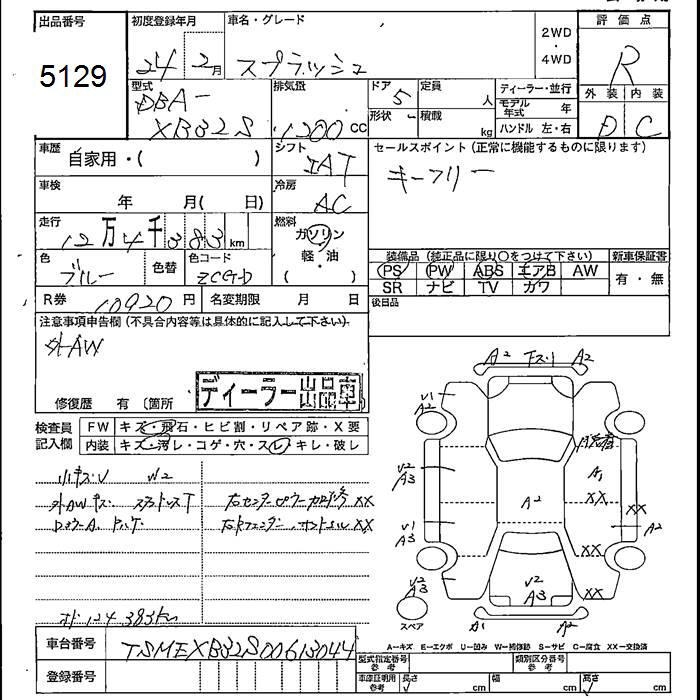 出品番号
5129
初度登録年月
24年 2月
車名・グレード
スプラッシュ
2WD
・
4WD
評価点
R
外装 内装
D C
型式
DBA-
XB32S
排気量
1200 cc
ドア 5
形状
定員 人
積載 kg
ディーラー・並行
モデル年式 年
ハンドル 左・右
車歴
自家用・( )
シフト
IAT
セールスポイント(正常に機能するものに限ります)
キーフリー
車検
年 月( 日)
冷房
AC
走行
12万4千383km
燃料
ガソリン
軽・油
( )
色
ブルー
色替
色コード
ZCG-D
装備品(純正品に限り○をつけて下さい)
新車保証書
PS PW ABS エアB AW
SR ナビ TV カワ
有・無
R券 10920円
名変期限 月 日
後日品
注意事項申告欄(不具合内容等は具体的に記入して下さい)
社外AW
ディーラー出品車
修復歴 有〔箇所
検査員
記入欄
FW キズ・飛石・ヒビ割・リペア跡・X要
内装 キズ・汚レ・コゲ・穴・スレ・キレ・破レ
小キズ
XX
XX
124.383km
A2 下スリ A2
V1
A2
V2
A3
V1
A3
V2
A3
A2
A1
XX
XX
A2
XX
XX
V2
A3
A1 A2
スペア
A-キズ E-エクボ U-凹み W-補修跡 S-サビ C-腐食 XX-交換済
車台番号
TSMEXB32S00613044
登録番号
型式指定番号
参考
類別区分番号
参考
車庫証明用
参考
長さ cm
幅 cm
高さ cm